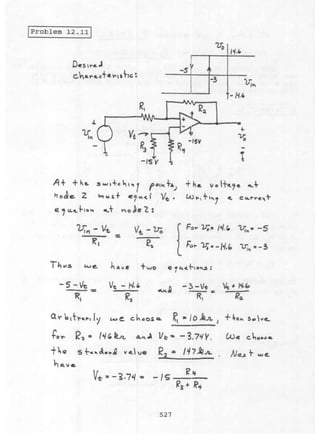 Problem 12.11
Desired
characteristic:
v_o
14.6
-5
-3
v_in
-14.6
R1
R2
+
v_in
-
V_t
R3
R4
-15V
-15V
+
v_o
-
At the switching points, the voltage at
node 2 must equal V_t. Writing a current
equation at node 2:
(v_in - V_t)/R1 = (V_t - v_o)/R2 { For v_o = 14.6 v_in = -5
For v_o = -14.6 v_in = -3
Thus we have two equations:
(-5 - V_t)/R1 = (V_t - 14.6)/R2 and (-3 - V_t)/R1 = (V_t + 14.6)/R2
Arbitrarily we choose R1 = 10 kΩ, then solve
for R2 = 146 kΩ and V_t = -3.74V. We choose
the standard value R2 = 147 kΩ. Next we
have
V_t = -3.74 = -15 R4/(R3 + R4)
527